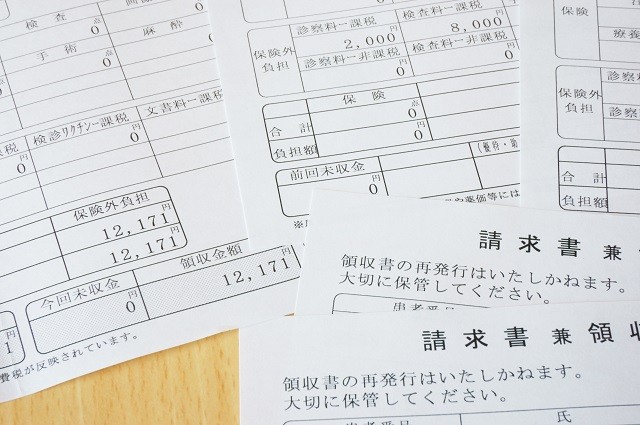 検査
0点
手術
0点
麻酔
0点
検診ワクチン－課税
0円
0円
文書料－課税
保険外負担
12,171円
12,171円
領収金額
今回未収金
0円
12,171円
費税が反映されています。
保険外
負担
診察料－課税
2,000円
検査料－課税
8,000円
診察料－非課税
0円
検査料－非課税
0円
保険
合計
0点
負担額
0円
前回未収金
0円
保険
保険外
負担
診察
診察
合計
負担額
請求書兼
領収書の再発行はいたしかねます。
大切に保管してください。
患者番号
請求書兼領収
領収書の再発行はいたしかねます。
大切に保管してください。
患者番号
氏